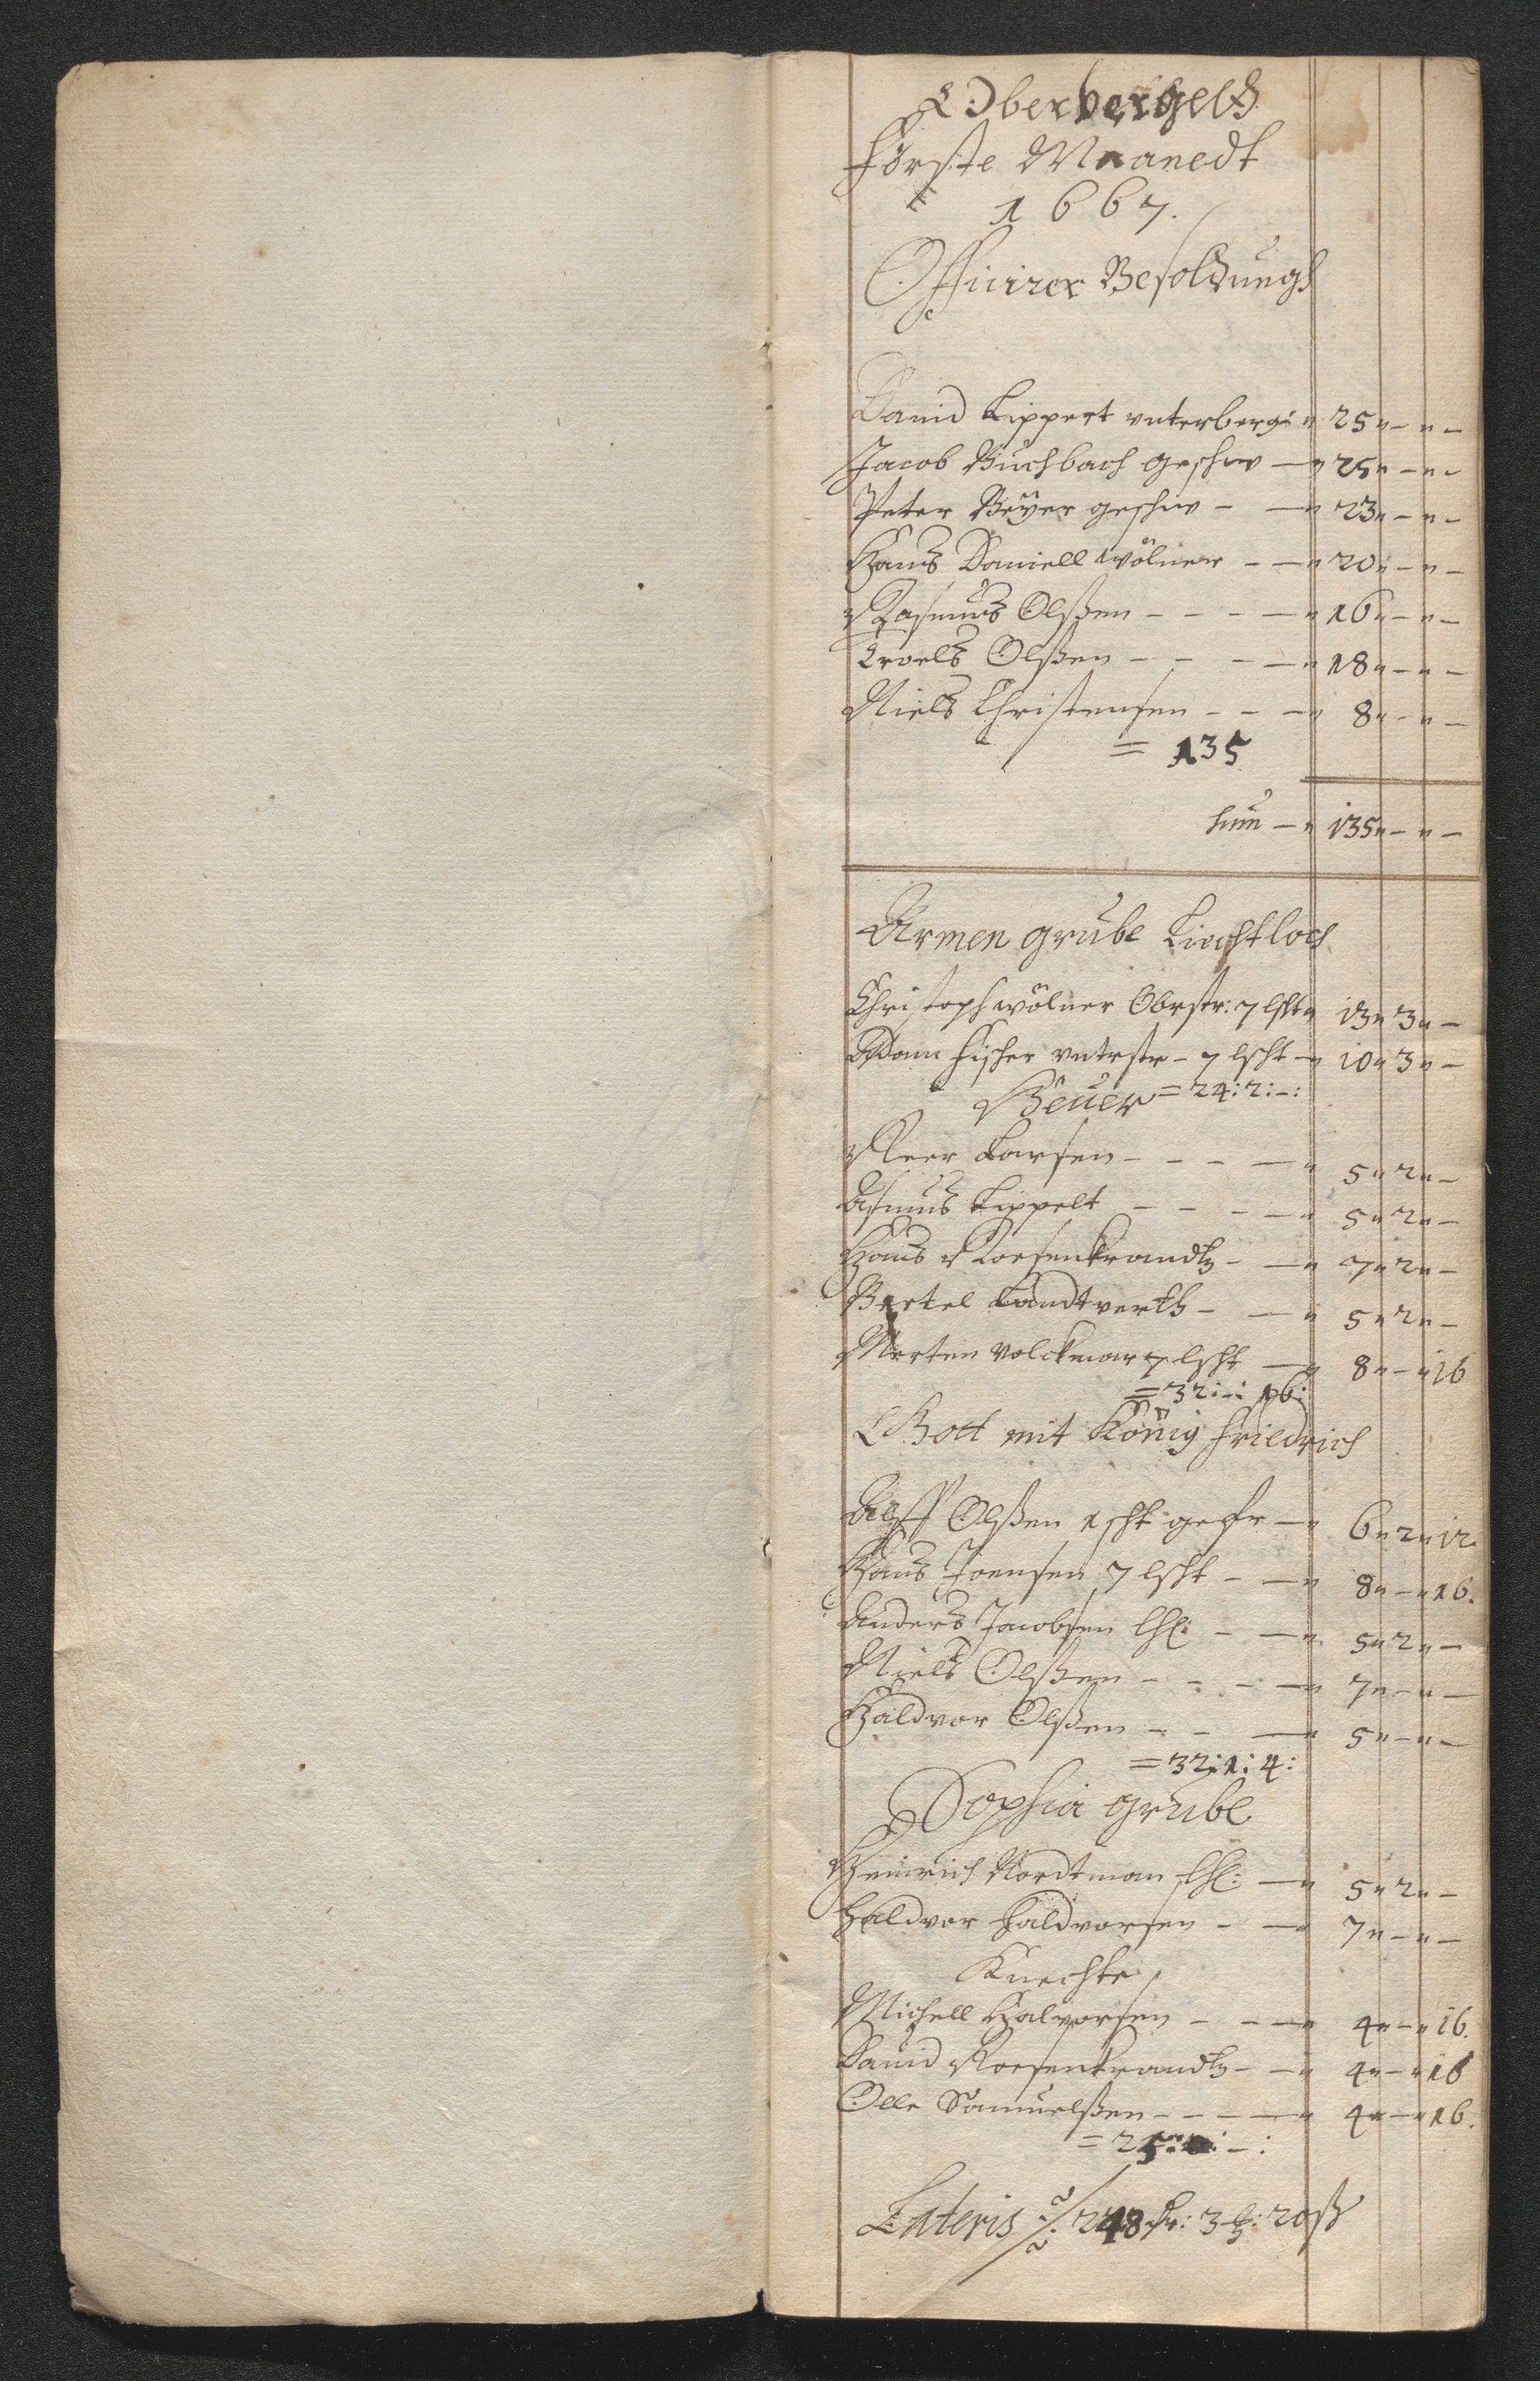 Oberbergelß
Förste Maanedt
1667.
Officirer Besoldungh
David Lippert vnterberg: " 25 " - " -
Jacob Buchbach geschw - " 25 " - " -
Peter Beÿer geschw - - " 23 " - " -
Hans Daniell wölner - - " 20 " - " -
Rasmus Olßen - - - - " 16 " - " -
Troels Olßen - - - - " 18 " - " -
Niels Christensen - - - " 8 " - " -
= 135
Sum - " 135 " - " -
Armen grube Liechtloch
Christoph wölner Obrstr: 7 lscht " 13 " 3 " -
Adam Fischer vntrstr - 7 lscht - " 10 " 3 " -
Heuer = 24 : 2 : - :
Peer Larsen - - - - " 5 " 2 " -
Asmus Lippelt - - - - " 5 " 2 " -
Hans Roesenkrandtz - - " 7 " 2 " -
Bertel Landtverth - - " 5 " 2 " -
Morten Volckmar 7 lscht - " 8 " - " 16
= 32 : - : 16 :
Gott mit König Friedrich
Alff Olßen 1 scht gefr - " 6 " 2 " 12
Hans Joensen 7 lscht - - " 8 " - " 16.
Anders Jacobsen - - " 5 " 2 " -
Niels Olßen - - - - " 7 " - " -
Haldvor Olßen - - - " 5 " - " -
= 32 : 1 : 4 :
Sophia grube
Heinrich Nordtman - " 5 " 2 " -
Haldvor Haldvorsen - - " 7 " - " -
Knechte
Michell Halvorsen - - - " 4 " - " 16.
David Roesenkrandtz - - " 4 " - " 16
Olle Samuelßen - - - - " 4 " - " 16.
= 25 : - :
Lateris ./. 248 : 3 : 20 ß